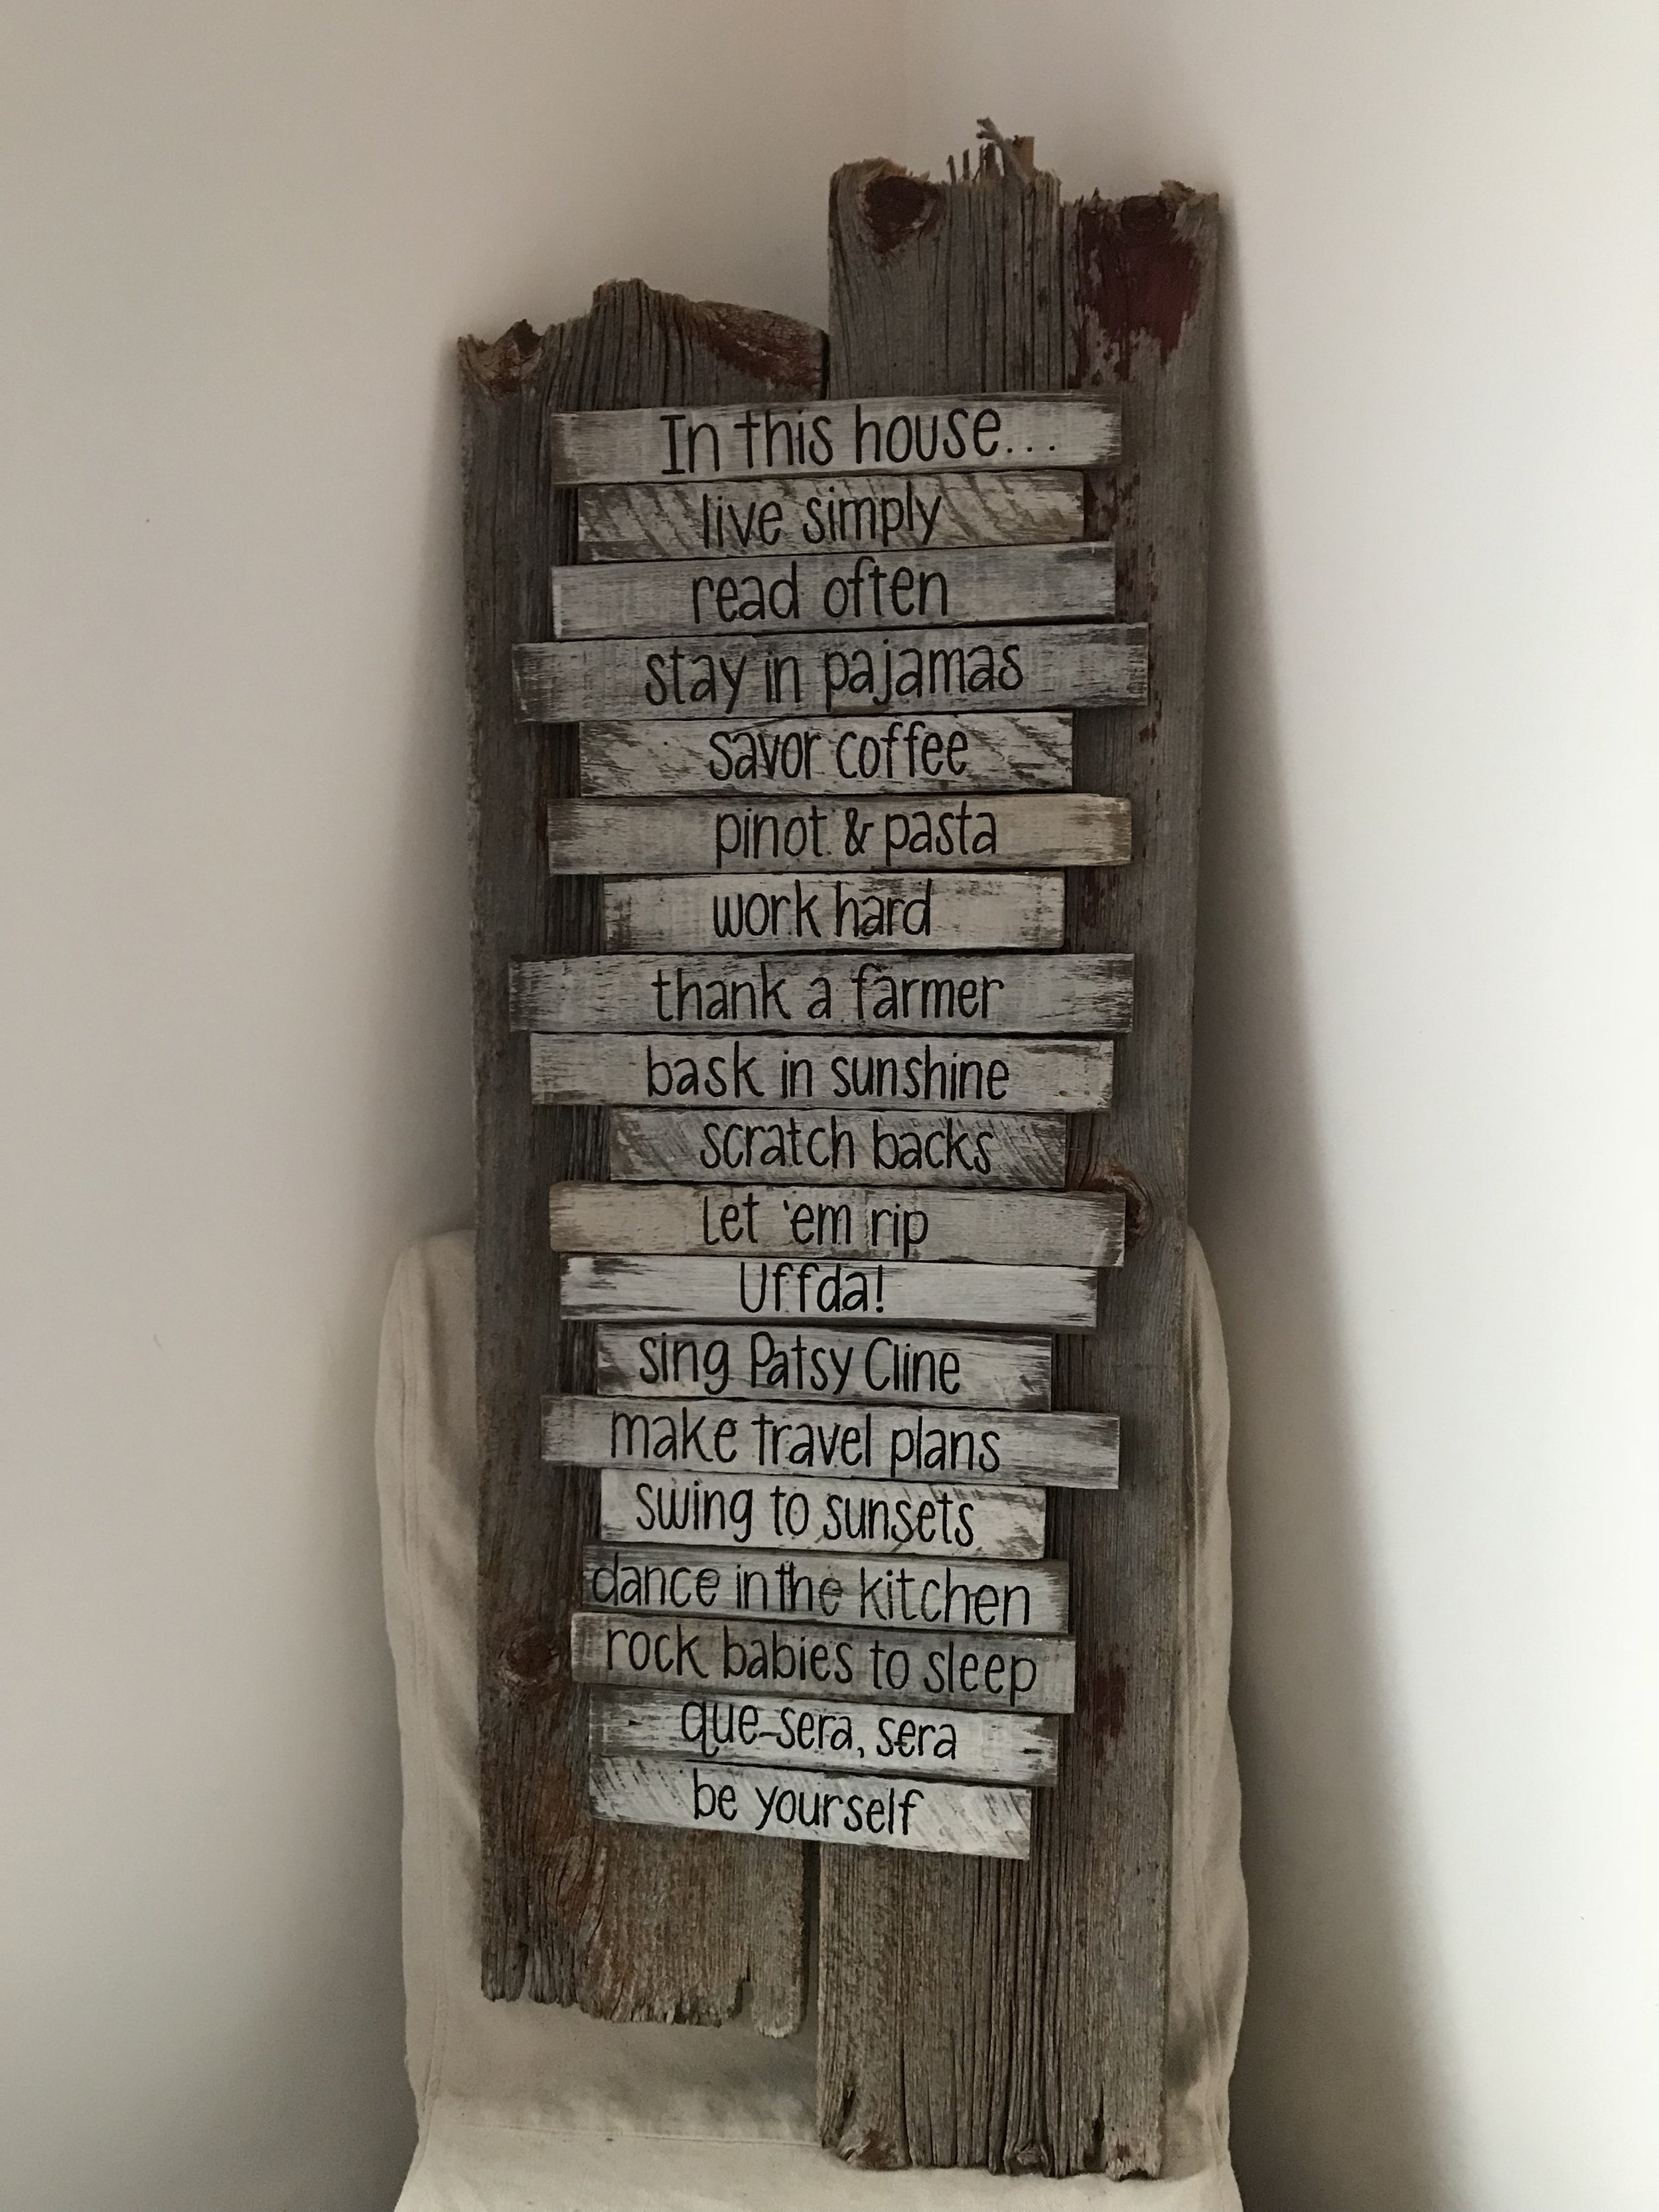 In this house...
live simply
read often
stay in pajamas
savor coffee
pinot & pasta
work hard
thank a farmer
bask in sunshine
scratch backs
Let 'em rip
Uffda!
sing Patsy Cline
make travel plans
swing to sunsets
dance in the kitchen
rock babies to sleep
que-sera, sera
be yourself